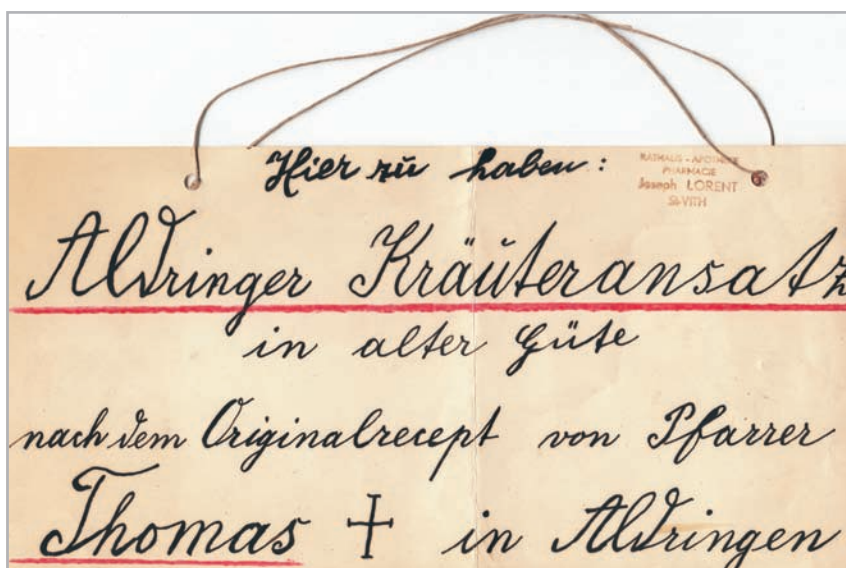 Hier zu haben:
RATHAUS - APOTHEKE
PHARMACIE
Joseph LORENT
St-VITH
Aldringer Kräuteransatz
in alter Güte
nach dem Originalrecept von Pfarrer
Thomas † in Aldringen